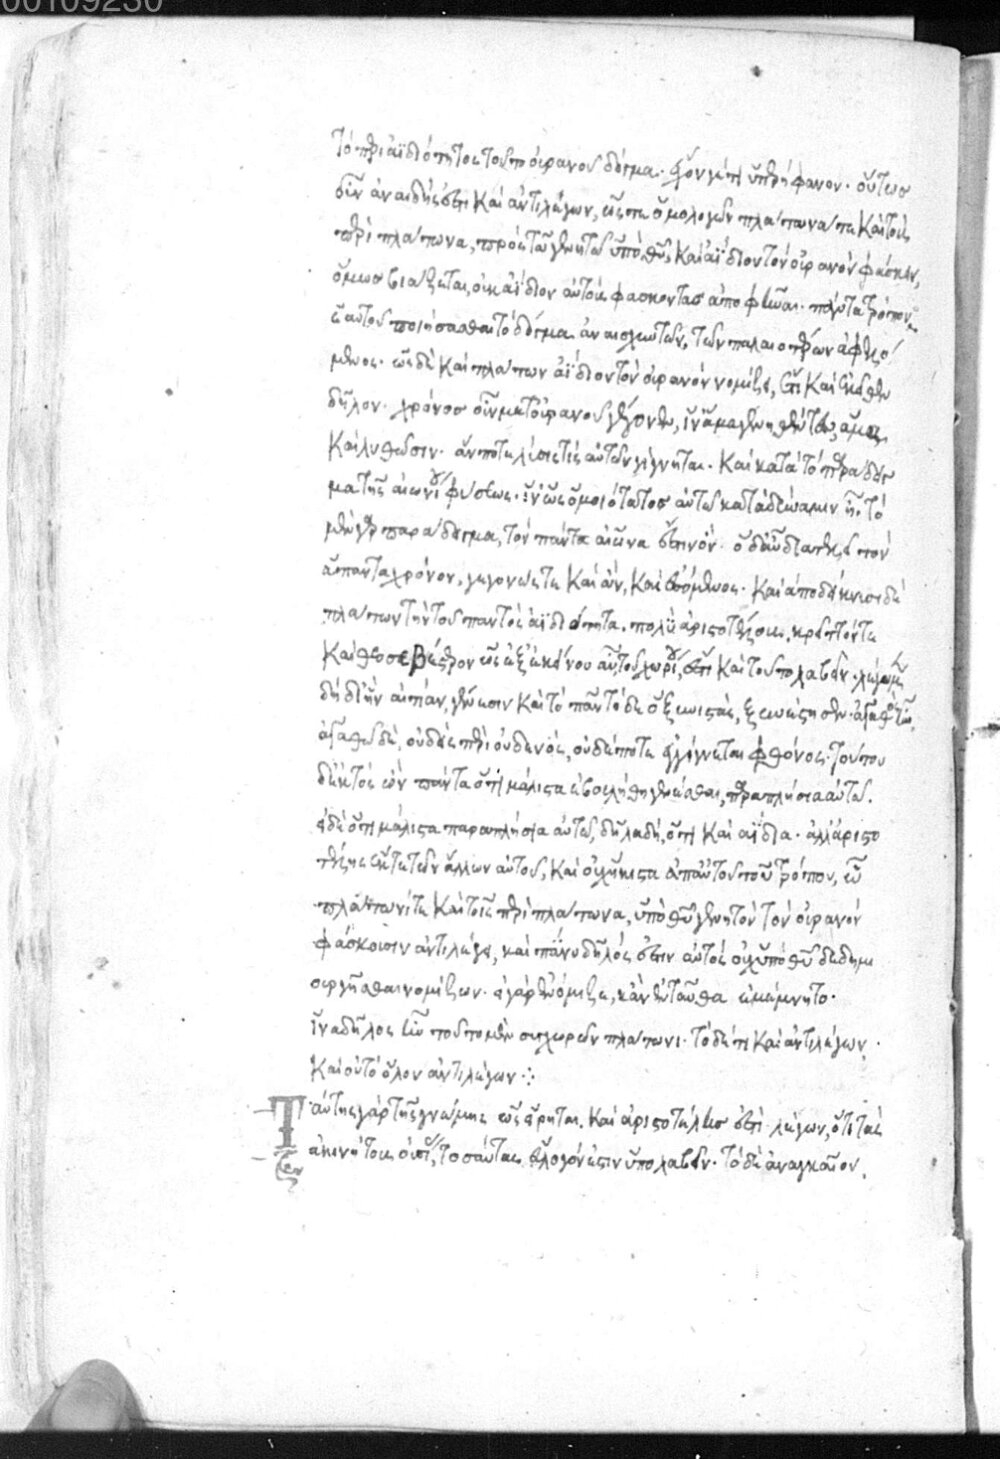 00109230
τὸ περὶ ἀϊδιότητος τοῦ οὐρανοῦ δόγμα. ὑπερήφανον. οὕτως
οὖν ἀναιδής ἐστι καὶ ἀντιλέγων, ὥστε ὁμολογῶν πλάτωνά τε καὶ τοὺς
περὶ πλάτωνα, πρός τῷ γενητῷ ὑπὸ θεοῦ, καὶ ἀΐδιον τὸν οὐρανὸν φάσκειν,
ὅμως βιάζεται, οὐκ ἀΐδιον αὐτοὺς φάσκοντας ἀποφῆναι. πάντα τρόπον
ἑαυτοῦ ποιήσασθαι τὸ δόγμα ἀναισχυντῶν, τῶν παλαιοτέρων ἀφελό
μενος. ὡς δὲ καὶ πλάτων ἀΐδιον τὸν οὐρανὸν νομίζει, ἔστι καὶ ἐνθένδε
δῆλον. χρόνος οὖν μετ' οὐρανοῦ γέγονεν, ἵν' ἅμα γεννηθέντες, ἅμα
καὶ λυθῶσιν. ἄν ποτε λύσις τις αὐτῶν γίγνηται. καὶ κατὰ τὸ παράδειγ
μα τῆς αἰωνίου φύσεως. ἵν' ὡς ὁμοιότατος αὐτῷ κατὰ δύναμιν ᾖ. τὸ
μὲν γὰρ παράδειγμα, τὸν πάντα αἰῶνα ἐστιν ὄν. ὁ δ' αὖ διατέλους τὸν
ἅπαντα χρόνον, γεγονώς τε καὶ ὤν, καὶ ἐσόμενος. καὶ ἀποδείκνυσι δὲ
πλάτων τὴν τοῦ παντὸς ἀϊδιότητα. πολὺ ἀριστοτέλους, κρειττόντως
καὶ θεοσεβέστερον ἐξ ἐκείνου αὐτοῦ χωρίου ἐστι καὶ τοῦτο λαβεῖν. λέγωμεν
δὴ δι' ἣν αἰτίαν, γένεσιν καὶ τὸ πᾶν τόδε ὁ ξυνιστάς, ξυνέστησεν. ἀγαθὸς ἦν,
ἀγαθῷ δὲ, οὐδεὶς περὶ οὐδενὸς, οὐδέποτε ἐγγίγνεται φθόνος. τούτου
δ' ἐκτὸς ὢν πάντα ὅτι μάλιστα ἐβουλήθη γενέσθαι, παραπλήσια αὐτῷ.
εἰ δὲ ὅτι μάλιστα παραπλήσια αὐτῷ, δηλαδὴ, ὅτι καὶ ἀΐδια. ἀλλ' ἀριστο
τέλης ἔκ τε τῶν ἄλλων αὐτοῦ, καὶ οὐχ ἥκιστα ἀπ' αὐτοῦ τοῦ τρόπου, ᾧ
πλάτωνί τε καὶ τοῖς περὶ πλάτωνα, ὑπὸ θεοῦ γενητὸν τὸν οὐρανὸν
φάσκουσιν ἀντιλέγει, καὶ πάνυ δῆλός ἐστιν αὐτὸς οὐχ ὑπὸ θεοῦ δεδημι
ουργῆσθαι νομίζων. εἰ γὰρ ἐνόμιζε, κἂν ἐνταῦθα ἐμέμνητο.
ἵνα δῆλος ἦν τοῦτο μὲν συγχωρῶν πλάτωνι. τὸ δέ τι καὶ ἀντιλέγων.
καὶ οὐ τὸ ὅλον ἀντιλέγων ⁘
Ταύτης γὰρ τῆς γνώμης ὡς εἴρηται. καὶ ἀριστοτέλης ἐστὶ λέγων, ὅτι τὰς
ἀκινήτους οὐσίας, τοσαύτας εὔλογόν ἐστιν ὑπολαβεῖν. τὸ δὲ ἀναγκαῖον,